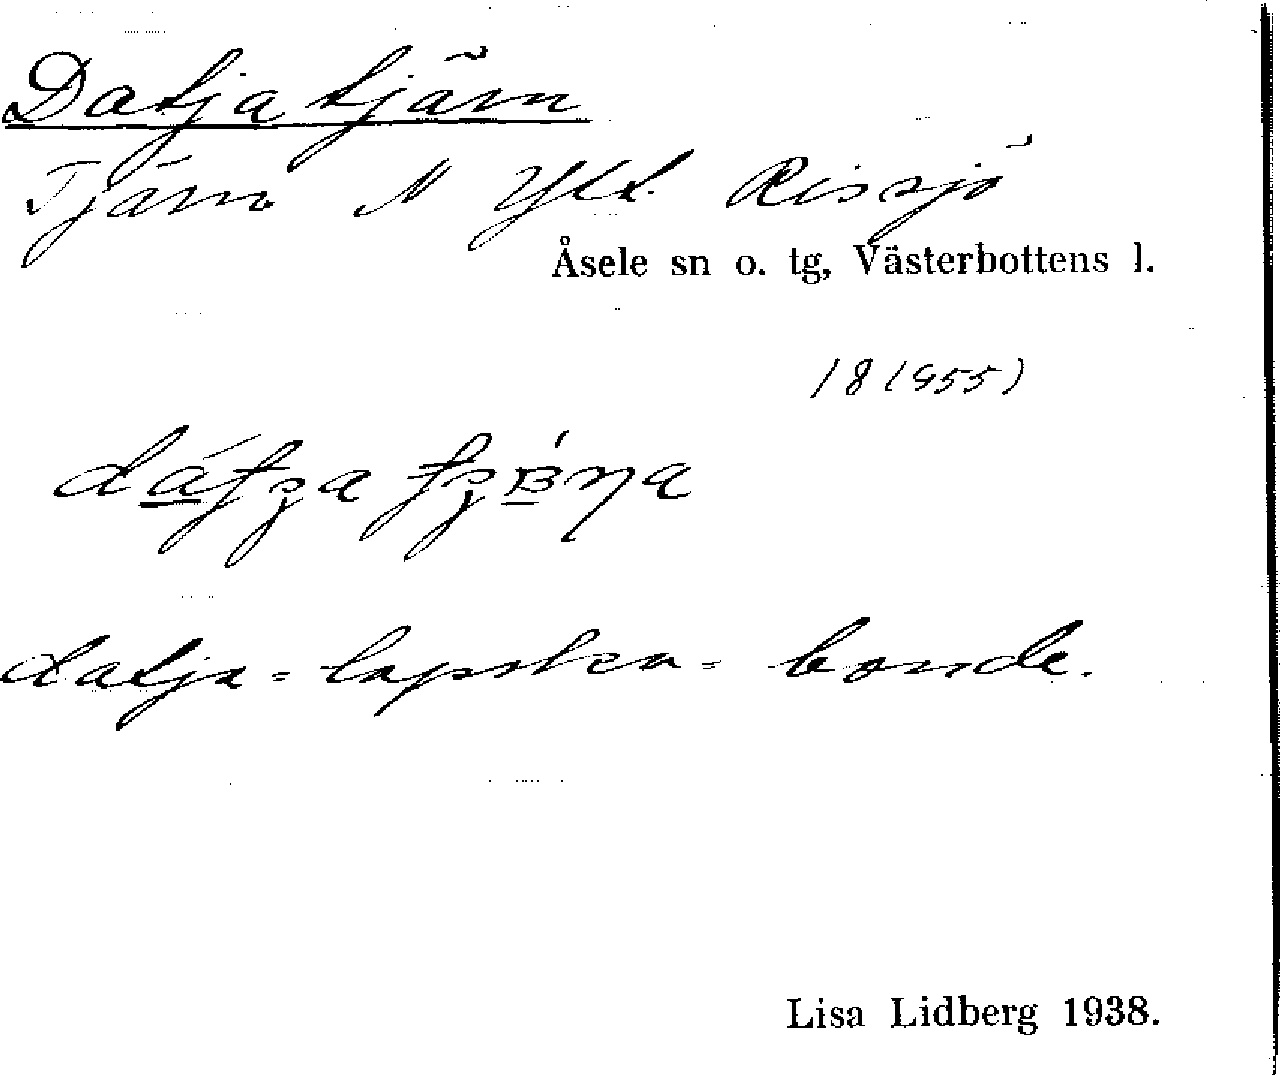 Datjatjärn
Tjärn N Yttr. Rissjö
Åsele sn o. tg, Västerbottens l.
18 (955)
datja = lapska = bonde.
Lisa Lidberg 1938.